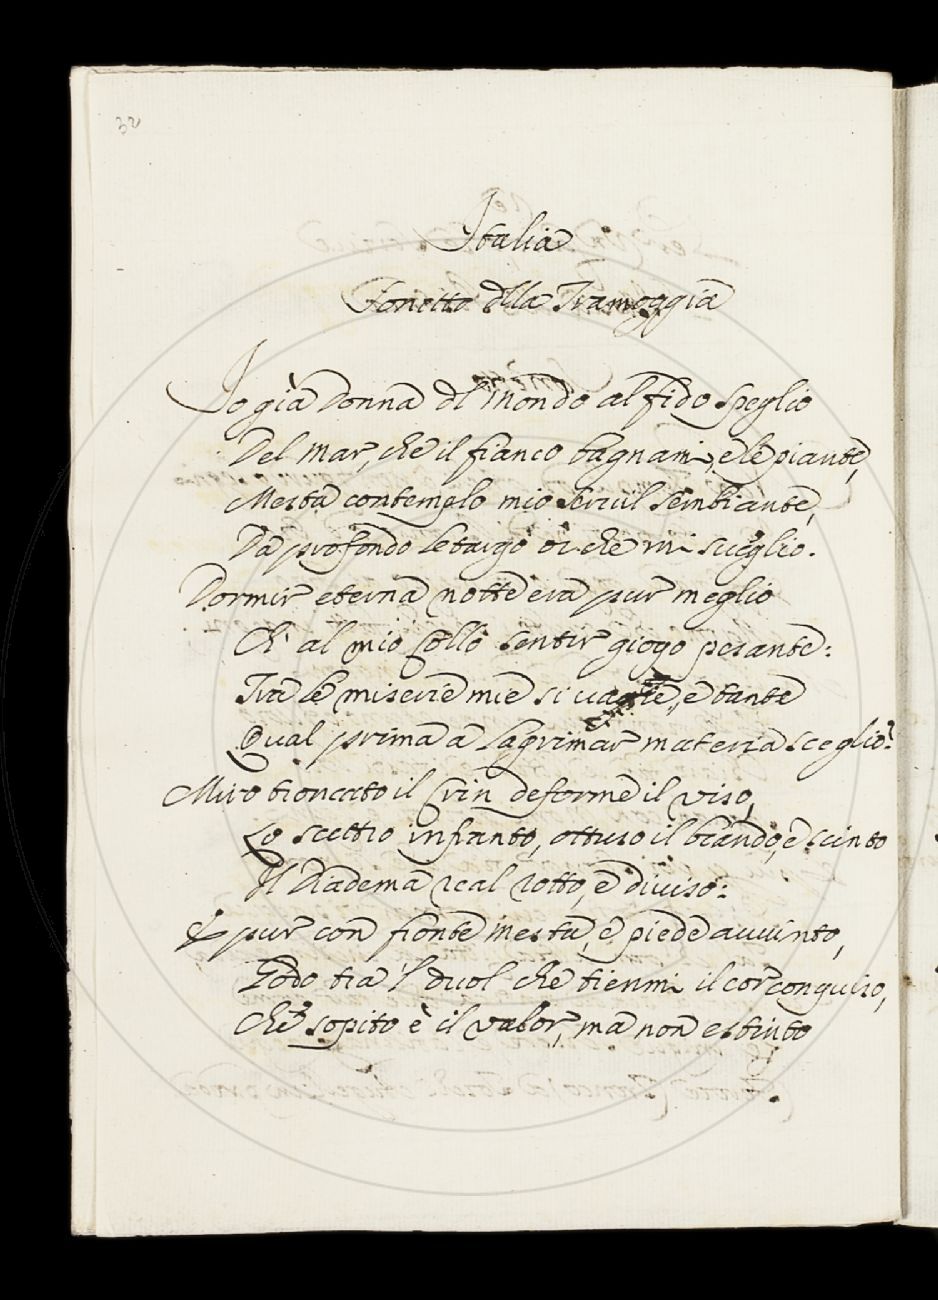 32
Italia
Sonetto dlla Tramoggia
Io già Donna dl Mondo al fido speglio
Del Mar, che il fianco bagnami, e le piante,
Mesta contemplo mio servil sembiante,
Da profondo letargo or che mi sveglio.
Dormir eterna notte era pur meglio
Ch' al mio Collo sentir giogo pesante:
Tra le miserie mie si varie, e tante
Qual prima a lagrimar materia sceglio?
Miro troncato il Crin deforme il viso,
Lo scettro infranto, ottuso il brando, e scinto
Il Diadema real rotto, e diviso:
E pur con fronte mesta, e piede avvinto,
Godo tra 'l duol che tienmi il cor conquiso,
Che sopito è il valor, ma non estinto